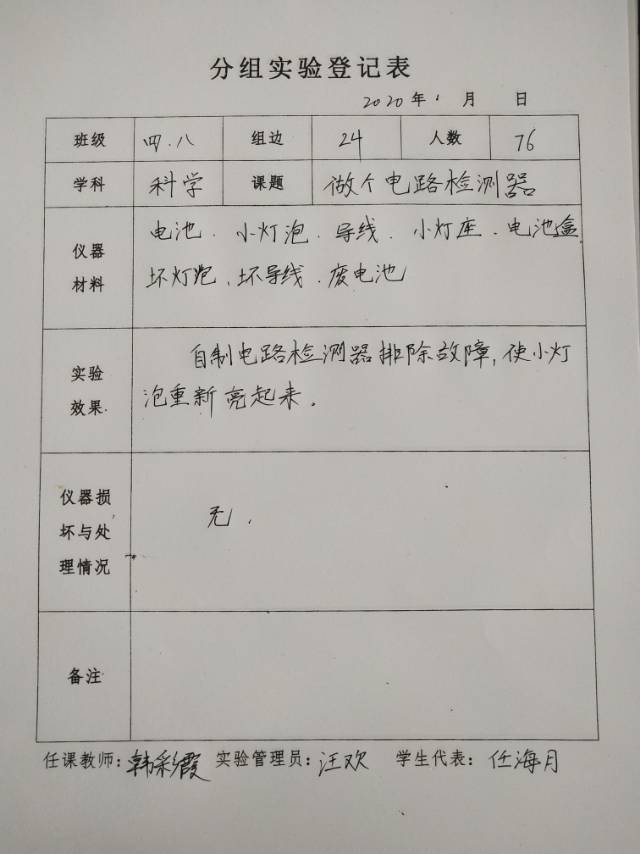 分组实验登记表
2020年1月 日
班级 四.八 组边 24 人数 76
学科 科学 课题 做个电路检测器
仪器材料 电池、小灯泡、导线、小灯座、电池盒
坏灯炮、坏导线、废电池
实验效果 自制电路检测器排除故障,使小灯
泡重新亮起来。
仪器损坏与处理情况 无.
备注
任课教师:韩彩霞 实验管理员:汪欢 学生代表:任海月